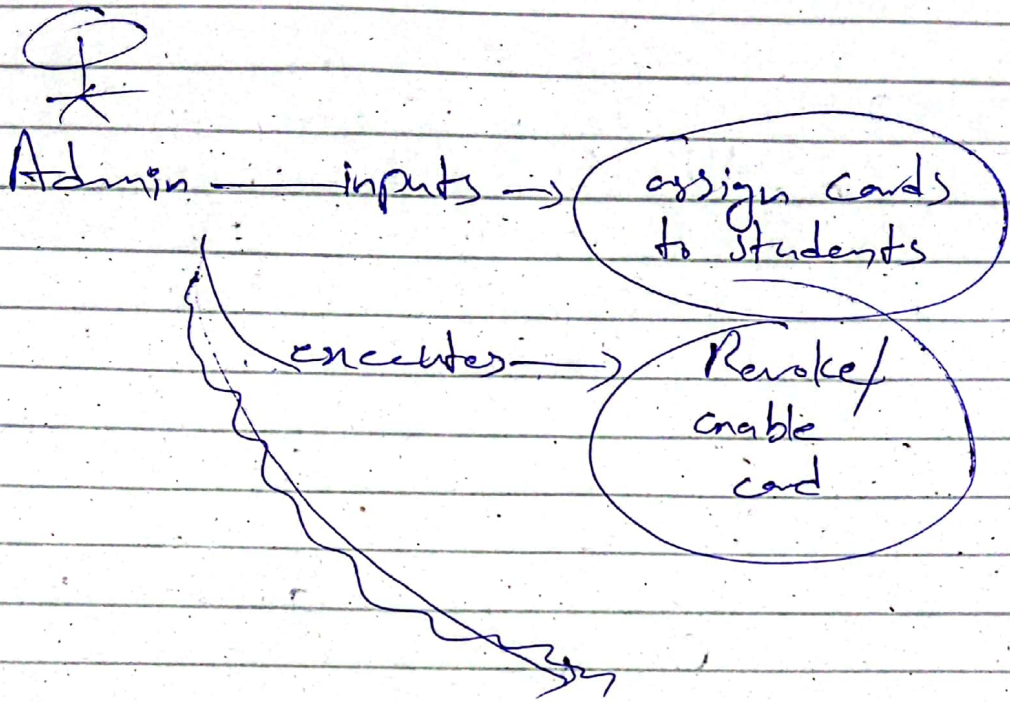 Admin inputs assign cards
to students
executes Revoke/
enable
card